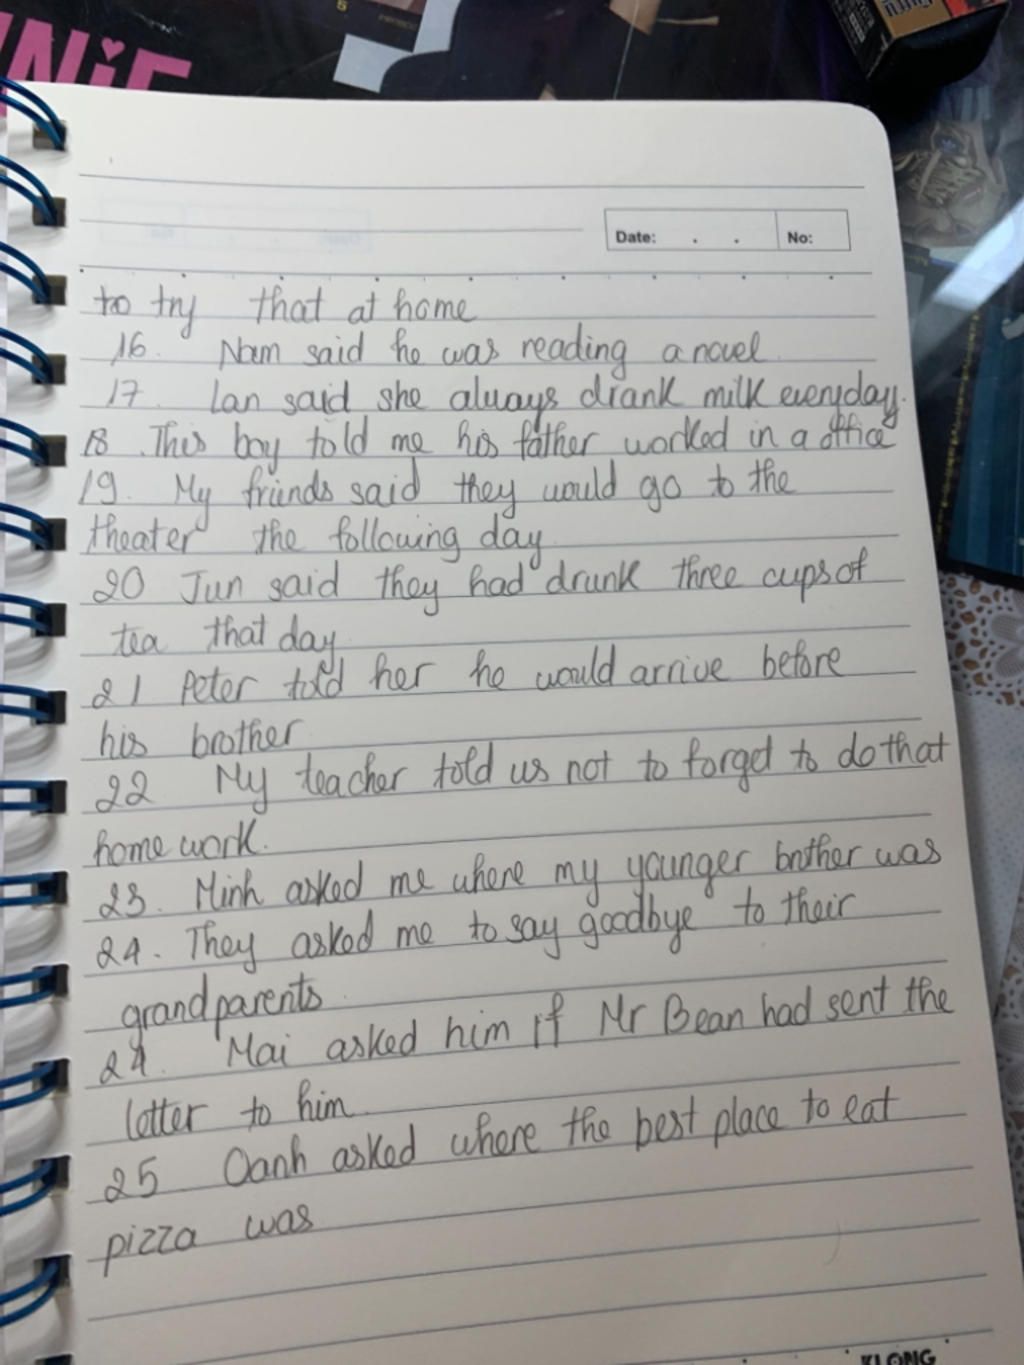 NiE
Date: . . No:
to try that at home
16. Nam said he was reading a novel
17. lan said she always drank milk everyday.
18. This boy told me his father worked in a office
19. My friends said they would go to the
theater the following day
20 Jun said they had drunk three cups of
tea that day
21 Peter told her he would arrive before
his brother
22 My teacher told us not to forget to do that
home work.
23. Minh asked me where my younger brother was
24. They asked me to say goodbye to their
grandparents
24. Mai asked him if Mr Bean had sent the
letter to him
25 Oanh asked where the best place to eat
pizza was
KLONG